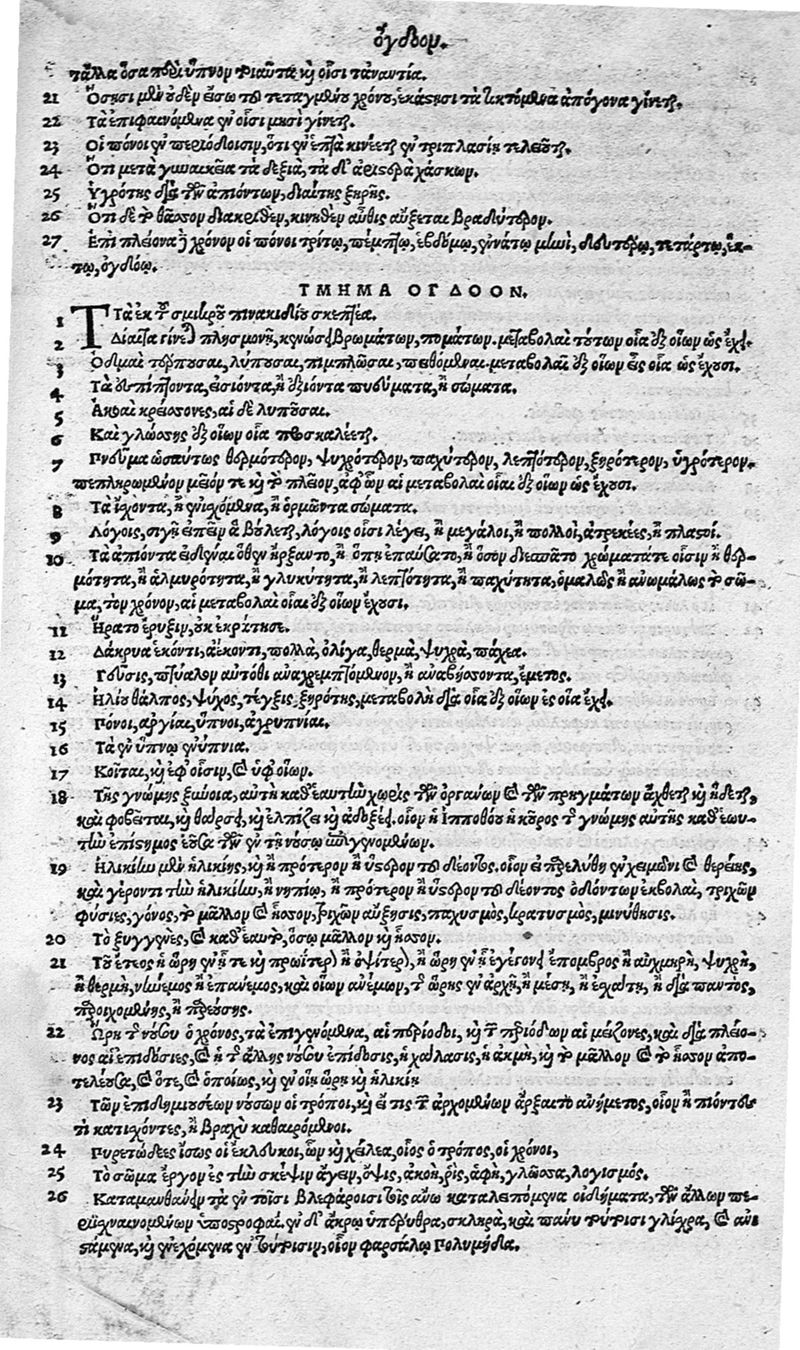 ὄγδοον.
τἄλλα ὅσα περὶ ὕπνον τοιαῦτα καὶ οἷσι τἀναντία.
21 Ὅσῃσι μὲν οὐδὲν εἴσω τοῦ τεταγμένου χρόνου, ἑκάστῃσι τὰ τικτόμενα ἀπόγονα γίνεται.
22 Τὰ ἐπιφαινόμενα ἐν οἷσι μησὶ γίνεται.
23 Οἱ πόνοι ἐν περιόδοισιν, ὅτι ἐν ἑπτὰ κινέεται ἐν τριπλασίῃ τελεοῦται.
24 Ὅτι μετὰ γυναικεῖα τὰ δεξιὰ, τὰ δ' ἀριστερὰ χάσκων.
25 Ὑγρότης διὰ τῶν ἀπιόντων, διαίτης ξηρῆς.
26 Ὅτι δὲ τὸ θᾶσσον διακριθὲν, κινηθὲν αὖθις αὔξεται βραδύτερον.
27 Ἐπὶ πλείονα χρόνον οἱ πόνοι τρίτῳ, πέμπτῳ, ἑβδόμῳ, ἐνάτῳ μηνὶ, δευτέρῳ, τετάρτῳ, ἕκ-
τῳ, ὀγδόῳ.
ΤΜΗΜΑ ΟΓΔΟΟΝ.
1 Τὰ ἐκ τοῦ σμικροῦ πινακιδίου σκεπτέα.
2 Δίαιτα γίνεται πλησμονῇ, κενώσει βρωμάτων, πομάτων. μεταβολαὶ τούτων οἷα ἐξ οἵων ὡς ἔχει.
3 Ὀδμαὶ τέρπουσαι, λύπουσαι, πιμπλῶσαι, πειθόμεναι. μεταβολαὶ ἐξ οἵων εἰς οἷα ὡς ἔχουσι.
4 Τὰ ἐσπίπτοντα, ἐσιόντα, ἢ ἐξιόντα πνεύματα, ἢ σώματα.
5 Ἀκοαὶ κρείσσονες, αἱ δὲ λυποῦσαι.
6 Καὶ γλώσσης ἐξ οἵων οἷα προσκαλέεται.
7 Πνεῦμα ὡσαύτως θερμότερον, ψυχρότερον, παχύτερον, λεπτότερον, ξηρότερον, ὑγρότερον.
πεπληρωμένον μεῖόν τε καὶ τὸ πλεῖον, ἀφ' ὧν αἱ μεταβολαὶ οἷαι ἐξ οἵων ὡς ἔχουσι.
8 Τὰ ἴσχοντα, ἢ ἐνισχόμενα, ἢ ὁρμῶντα σώματα.
9 Λόγοις, σιγῇ εἰπεῖν ἃ βούλεται, λόγοις οἷσι λέγει, ἢ μεγάλοι, ἢ πολλοὶ, ἀτρεκέες, ἢ πλαστοί.
10 Τὰ ἀπιόντα εἰδέναι ὅθεν ἤρξαντο, ἢ ὅπῃ ἐπαύσατο, ἢ ὅσον διεσπᾶτο χρώματά τε οἷσιν ἢ θερ-
μότητα, ἢ ἁλμυρότητα, ἢ γλυκύτητα, ἢ λεπτότητα, ἢ παχύτητα, ὁμαλῶς ἢ ἀνωμάλως τὸ σῶ-
μα, τὸν χρόνον, αἱ μεταβολαὶ οἷαι ἐξ οἵων ἔχουσι.
11 Ἤρατο ἔρυξιν, οὐκ ἐκράτησε.
12 Δάκρυα ἑκόντι, ἀέκοντι, πολλὰ, ὀλίγα, θερμὰ, ψυχρὰ, πάχεα.
13 Γεῦσις, πτύαλον αὐτόθι ἀναχρεμπτόμενον, ἢ ἀναβήσσοντα, ἔμετος.
14 Ἡλίου θάλπος, ψύχος, τέγξις, ξηρότης, μεταβολὴ διὰ οἷα ἐξ οἵων ἐς οἷα ἔχει.
15 Πόνοι, ἀργίαι, ὕπνοι, ἀγρυπνίαι.
16 Τὰ ἐν ὕπνῳ ἐνύπνια.
17 Κοῖται, καὶ ἐφ' οἷσιν, καὶ ὑφ' οἵων.
18 Τῆς γνώμης ξύννοια, αὐτὴ καθ' ἑαυτὴν χωρὶς τῶν ὀργάνων καὶ τῶν πρηγμάτων ἄχθεται καὶ ἥδεται,
καὶ φοβεῖται, καὶ θαρσεῖ, καὶ ἐλπίζει καὶ ἀδοξέει. οἷον ἡ Ἱπποθόου ἡ κοῦρος τῆς γνώμης αὐτῆς καθ' ἑωυ-
τὴν ἐπίσημος ἐοῦσα τῶν ἐν τῇ νούσῳ ἐπιγινομένων.
19 Ἡλικίην μὲν ἡλικίης, καὶ ἢ πρότερον ἢ ὕστερον τοῦ δέοντος. οἷον εἰ παρελύθη ἐν χειμῶνι καὶ θερείης,
καὶ γέροντι τὴν ἡλικίην, ἢ νηπίῳ, ἢ πρότερον ἢ ὕστερον τοῦ δέοντος ὀδόντων ἐκβολαὶ, τριχῶν
φύσιες, γόνος, τὸ μᾶλλον καὶ ἧσσον, τριχῶν αὔξησις, παχυσμὸς, κρατυσμὸς, μινύθησις.
20 Τὸ ξυγγενὲς, καὶ καθ' ἑαυτὸ, ὅσῳ μᾶλλον καὶ ἧσσον.
21 Τοῦ ἔτεος ἡ ὥρη ἐν ᾗ τε καὶ πρωΐτερον ἢ ὀψίτερον, ἢ ὥρη ἐν ᾗ ἐγέγονει ἔπομβρος ἢ αὐχμηρὴ, ψυχρὴ,
ἢ θερμὴ, νήνεμος ἢ ἐπάνεμος, καὶ οἵων ἀνέμων, τῆς ὥρης ἐν ἀρχῇ, ἢ μέσῃ, ἢ ἐσχάτῃ, ἢ διὰ παντὸς,
προιχομένης, ἢ παρεούσης.
22 Ὥρη τῆς νούσου ὁ χρόνος, τὰ ἐπιγινόμενα, αἱ περίοδοι, καὶ τῶν περιόδων αἱ μείζονες, καὶ διὰ πλείο-
νος αἱ ἐπιδόσιες, καὶ ἡ τῆς ἄλλης νούσου ἐπίδοσις, ἡ χάλασις, ἡ ἀκμὴ, καὶ τὸ μᾶλλον καὶ τὸ ἧσσον ἀπο-
τελέουσα, καὶ ὅτε, καὶ ὁποίως, καὶ ἐν οἵῃ ὥρῃ καὶ ἡλικίῃ
23 Τῶν ἐπιδημιουσέων νούσων οἱ τρόποι, καὶ εἴ τις τῶν ἀρχομένων ἄρξαιτο ἀνήμετος, οἷον ἢ πιόντες
τὶ κατισχόντες, ἢ βραχὺ καθαιρόμενοι.
24 Πυρετώδεες ἴσως οἱ ἔκλευκοι, ὧν καὶ χείλεα, οἷος ὁ τρόπος, οἱ χρόνοι,
25 Τὸ σῶμα ἔργον ἐς τὴν σκέψιν ἄγειν, ὄψις, ἀκοὴ, ῥὶς, ἁφὴ, γλῶσσα, λογισμός.
26 Καταμανθάνειν τὰ ἐν τοῖσι βλεφάροισι τοῖς ἄνω καταλειπόμενα οἰδήματα, τῶν ἄλλων πε-
ριϊσχναινομένων ὑποστροφαί. ἐν δ' ἄκρῳ ὑπέρυθρα, σκληρὰ, καὶ πάνυ τούτοισι γλίσχρα, καὶ ἀνι
στάμενα, καὶ ἐνεχόμενα ἐν τούτοισιν, οἷον φαρσάλῳ Πολυμήδεα.